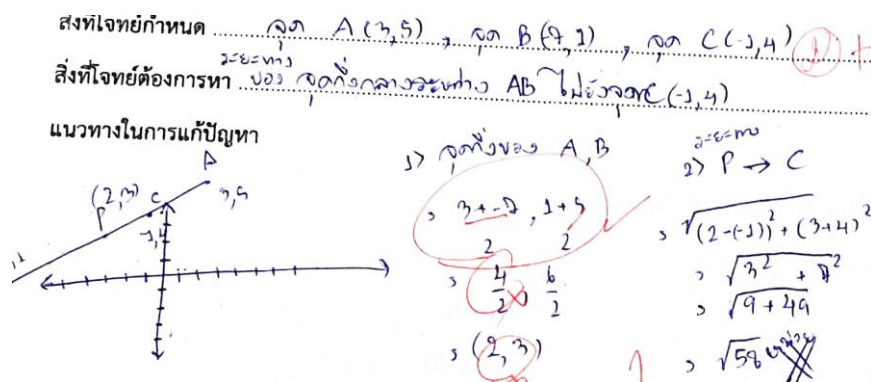 สิ่งที่โจทย์กำหนด จุด A(3,5) , จุด B(-7,1) , จุด C(-1,4)
ระยะทาง
สิ่งที่โจทย์ต้องการหา ของ จุดกึ่งกลางระหว่าง AB ไปยังจุด C(-1,4)
แนวทางในการแก้ปัญหา
A
3,5
(2,3)
P
C
-1,4
1) จุดกึ่งของ A,B
3+-7 , 1+5
2 2
4/2 , 6/2
(2,3)
ระยะทาง
2) P → C
√(2-(-1))² + (3+4)²
√3² + 7²
√9+49
√58 หน่วย